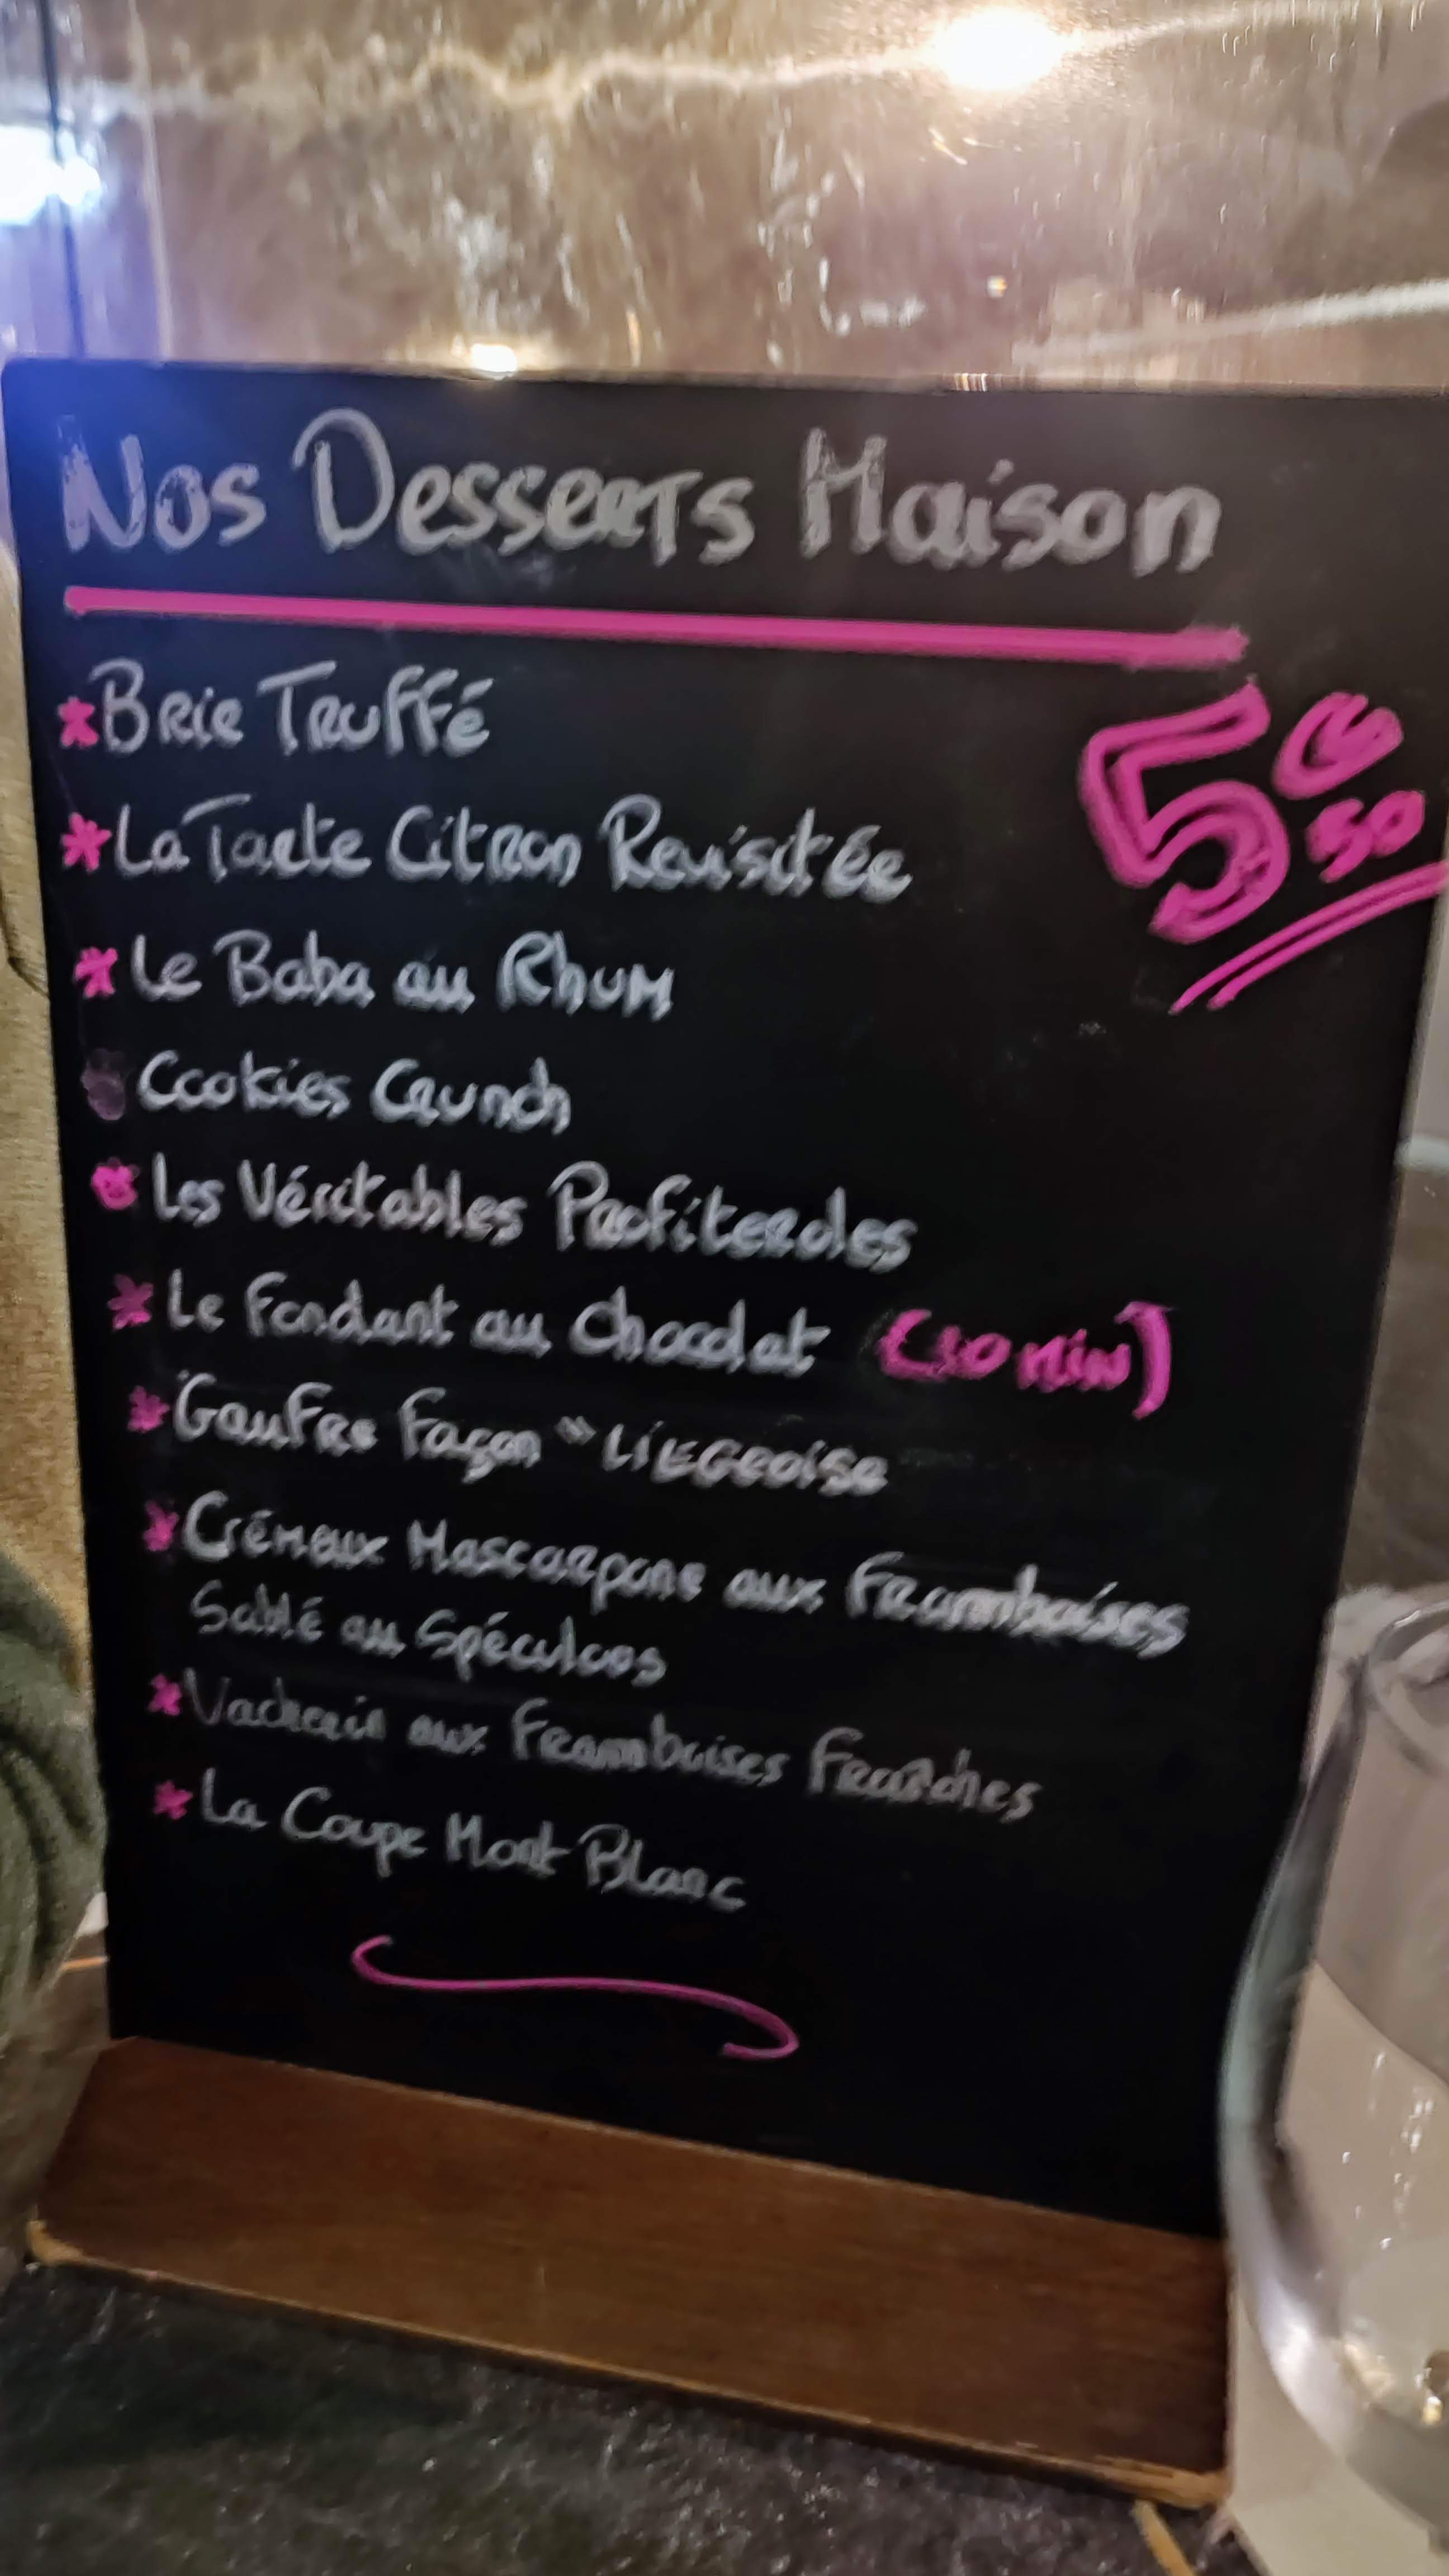 Nos Desserts Maison
Brie Truffé
5€50
La Tarte Citron Revisitée
Le Baba au Rhum
Cookies Crunch
Les Véritables Profiteroles
Le Fondant au Chocolat (10 MIN)
Gaufre Façon " LIEGEOISE
Crémeux Mascarpone aux Framboises
Sablé au Spéculoos
Vacherin aux Framboises Fraîches
La Coupe Mont Blanc